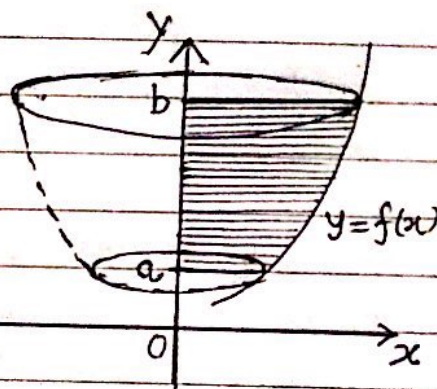 y
b
y=f(x)
a
0
x